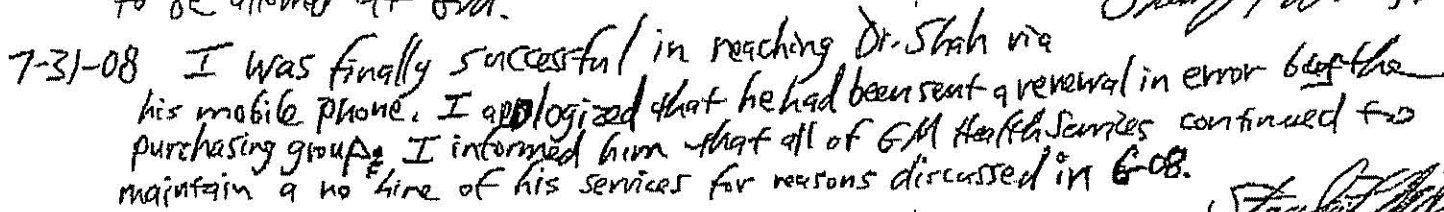 to be allowed
7-31-08 I was finally successful in reaching Dr. Shah via
his mobile phone. I apologized that he had been sent a renewal in error by the
purchasing group. I informed him that all of GM Health Services continued to
maintain a no hire of his services for reasons discussed in 6-08.